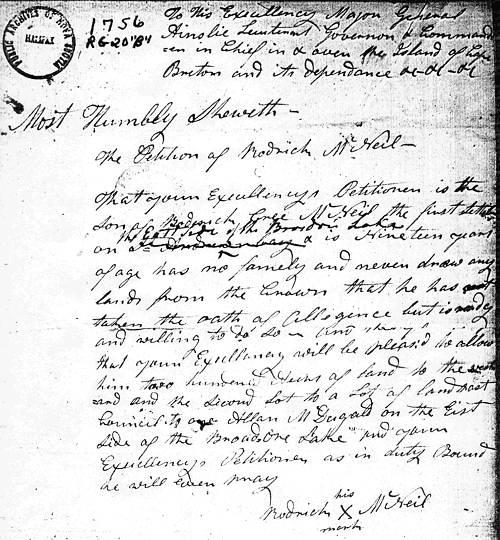 PUBLIC ARCHIVES OF NOVA SCOTIA
HALIFAX
1756
RG 20 "B"
To His Excellency Major General
Ainslie Lieutenant Governor & Command
=er in Chief in & over the Island of Cape
Breton and its dependance &c &c &c
Most Humbly Sheweth —
The Petition of Rodrick McNeil —
That your Excellencys Petitioner is the
son of Roderick McNeil the first
the East side of the Brasdor Lake
on & is Nineteen years
of age has no famely and never drew any
lands from the Crown that he has not
taken the oath of Allegence but is ready
and willing to do so
that your Excellency will be pleas'd to allow
him two hundred Acres of Land to the
and the second Lot to a Lot of land
Council to Allan McDugall on the East
side of the Broadore Lake and your
Excellencys Petitioner as in duty Bound
he will Ever pray
his
Rodrick X McNeil
mark